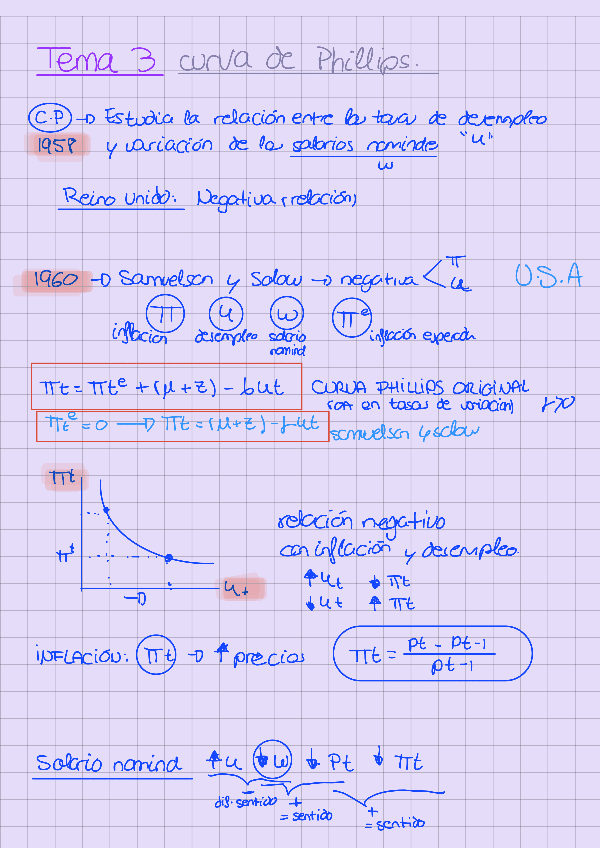 Tema 3 curva de Phillips.
C.P → Estudia la relación entre la tasa de desempleo "u"
1958 y variación de los salarios nominales
w
Reino unido: Negativa (relación)
1960 → Samuelson y Solow → negativa < π u U.S.A
π u w πᵉ
inflación desempleo salario nominal inflación esperada
πt = πtᵉ + (μ + z) - αut CURVA PHILLIPS ORIGINAL
(OA en tasas de variación) α>0
πtᵉ = 0 → πt = (μ + z) - αut Samuelson y Solow
πt
relación negativa
con inflación y desempleo.
πt
↑ ut ↓ πt
↓ ut ↑ πt
→ ut
INFLACIÓN: πt → ↑ precios πt = (pt - pt-1) / pt-1
Salario nominal ↑u ↓w ↓Pt ↓πt
dif. sentido + = sentido
+ = sentido